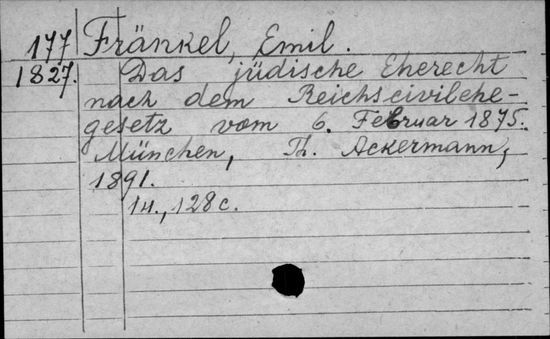 177 Fränkel, Emil.
1827. Das jüdische Eherecht
nach dem Reichscivilehe-
gesetz vom 6. Februar 1875.
München, Th. Ackermann,
1891.
1н., 128с.